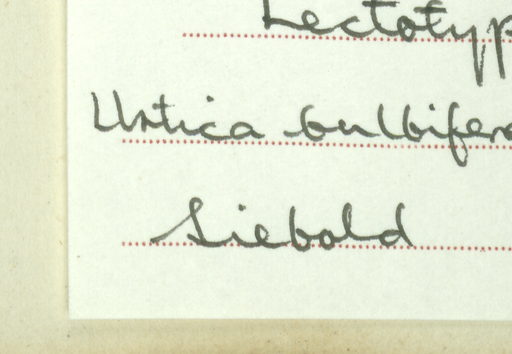 Lectotyp
Urtica bulbifera
Siebold